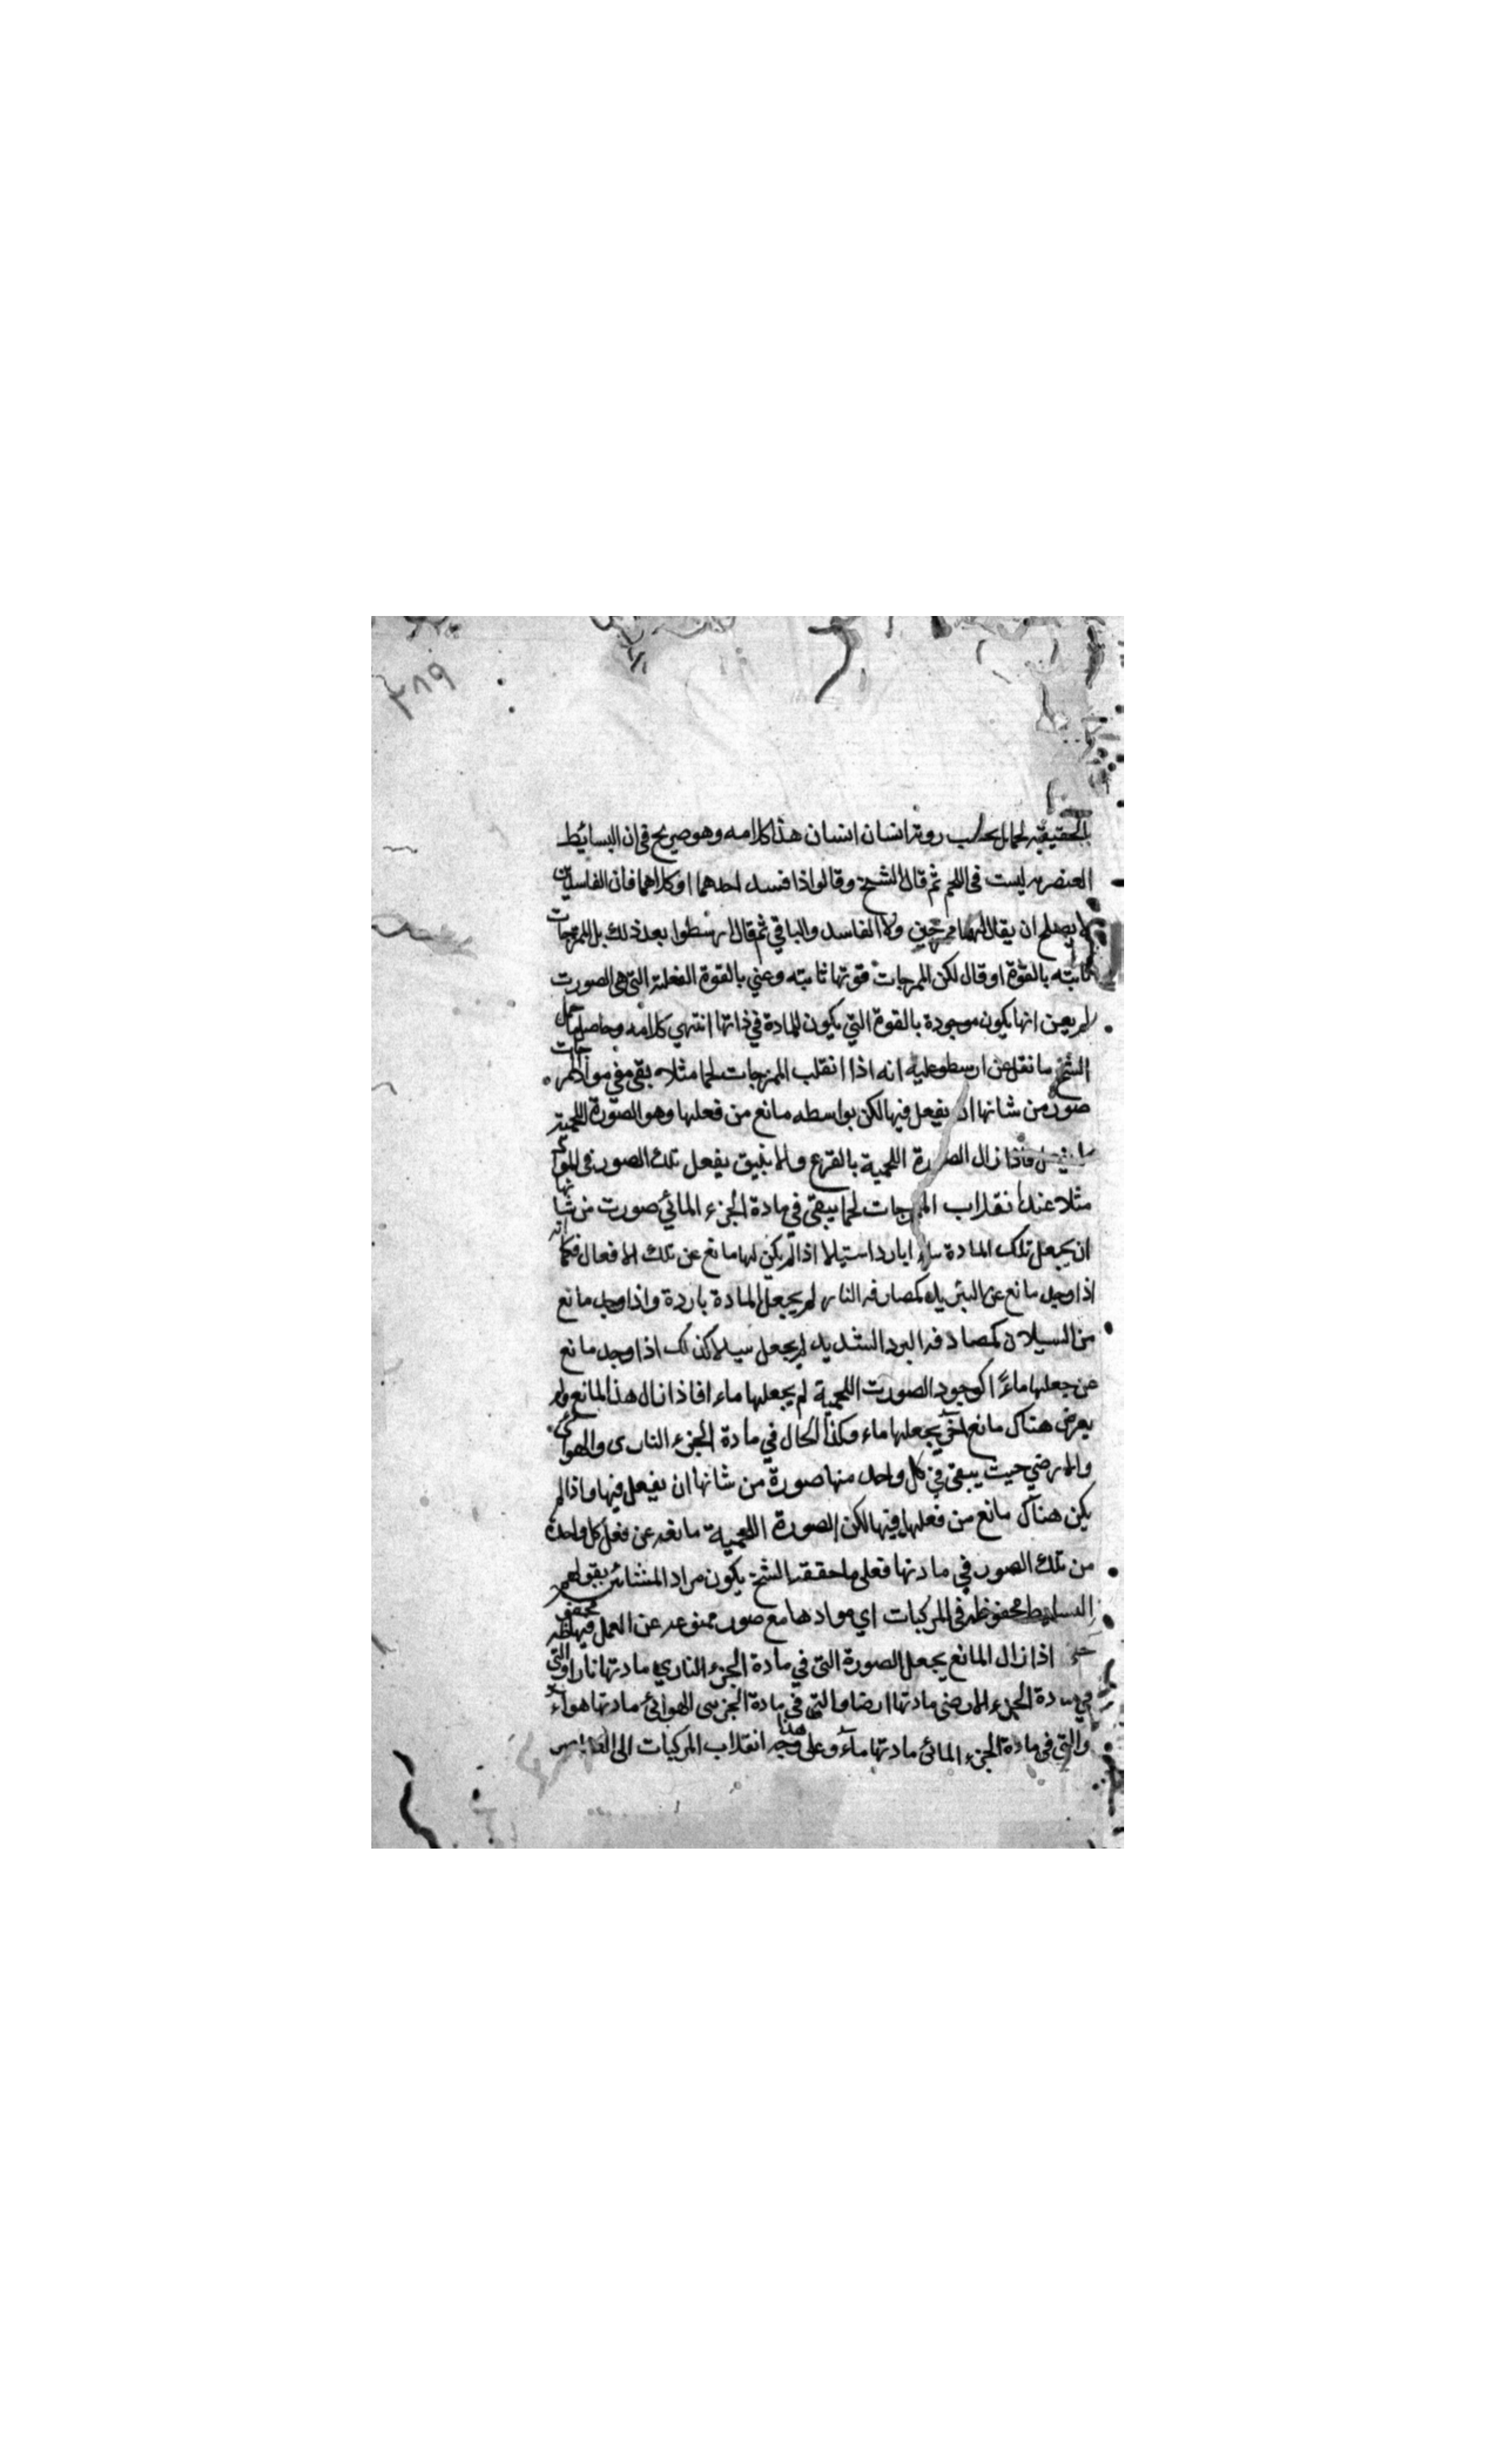 ٣٨٩
الحقيقية رويته انسان انسان هذا كلامه وهو صريح في ان البسائط
العنصريه ليست في اللحم ثم قال الشيخ وقالوا اذا فسد احدهما او كلاهما فان الفاسدين
لا يصلح ان يقال انهما ممزجين ولا الفاسد والباقي ثم قال ارسطوا بعد ذلك بل الممزجات
ثابته بالقوة او قال لكن الممزجات قوتها ثابته وعني بالقوة الفعلية التي هي الصورت
لم يعن انها يكون موجودة بالقوة التي يكون للمادة في ذاتها انتهي كلامه وحاصل ما حمل
الشيخ ما نقل عن ارسطو عليه انه اذا انقلب الممزجات لحما مثلا يبقي في مواد الممزجات
صور من شانها ان يفعل فيها لكن بواسطه مانع من فعلها وهو الصورة اللحمية
فاذا زال الصورة اللحمية بالقرع والانبيق يفعل تلك الصور في المواد
مثلا عند انقلاب الممزجات لحما يبقى في مادة الجزء المائي صورت من شانها
ان يجعل تلك المادة باردا سيلا اذا لم يكن لها مانع عن تلك الافعال فكما انه
اذا وجد مانع عن التبريد كمصادفه النار لم يجعل المادة باردة واذا وجد مانع
من السيلان كمصادفه البرد الشديد لم يجعل سيلا كذلك اذا وجد مانع
عن جعلها ماءً كوجود الصورت اللحمية لم يجعلها ماء فاذا زال هذا المانع ولم
يعرض هناك مانع آخر يجعلها ماء وكذا الحال في مادة الجزء الناري والهوائي
والارضي حيث يبقى في كل واحد منها صورة من شانها ان يفعل فيها واذا لم
يكن هناك مانع من فعلها فيها لكن الصورة اللحمية مانعه عن فعل كل واحدة
من تلك الصور في مادتها فعلى ما حققه الشيخ يكون مراد المشائين بقولهم
البسايط محفوظه في المركبات اي موادها مع صور ممنوعه عن العمل فيها محفوظه
اذا زال المانع يجعل الصورة التي في مادة الجزء الناري مادتها نارا والتي
في مادة الجزء الارضى مادتها ارضا والتي في مادة الجزء الهوائى مادتها هواء
والتي في مادة الجزء المائى مادتها ماءً وعلى هذا وجه انقلاب المركبات الى العناصر